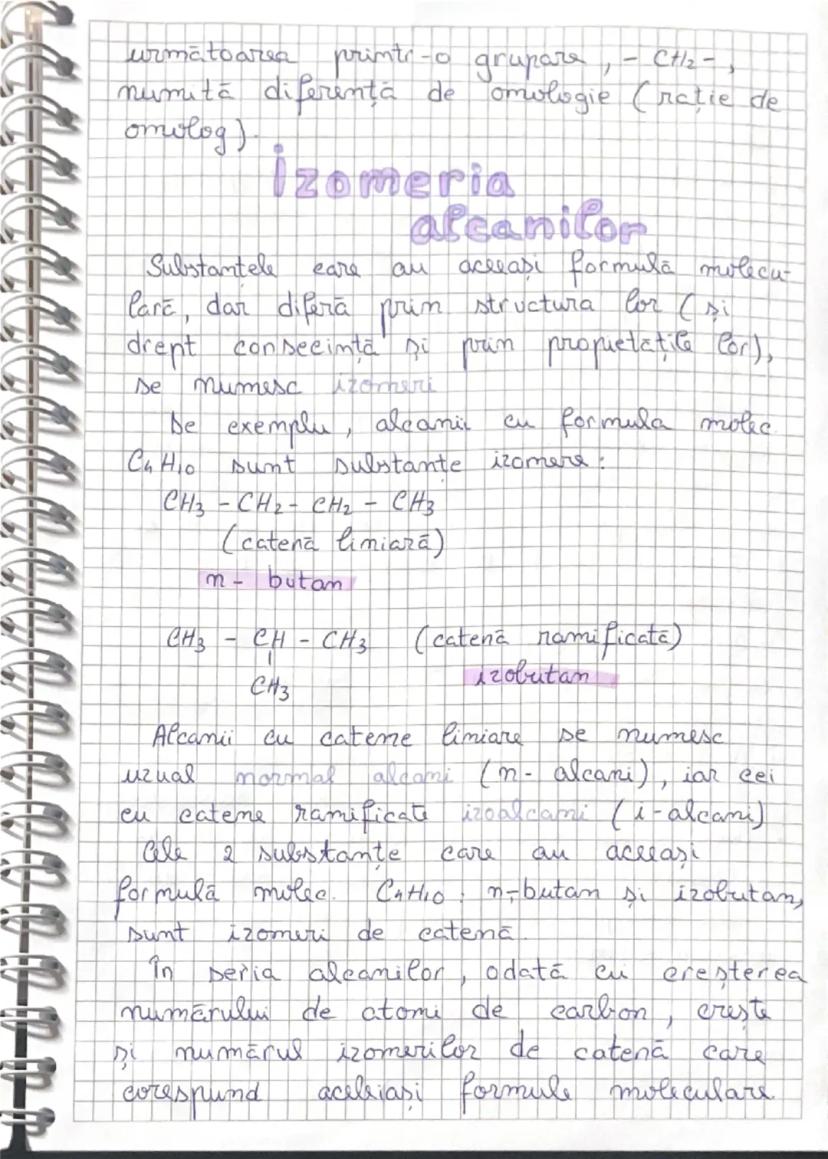 următoarea printr-o grupare, - CH2 -,
numită diferență de omologie (rație de
omolog).
Izomeria
alcanilor
Substanțele care au aceeași formulă molecu-
lară, dar diferă prin structura lor (și
drept consecință și prin proprietățile lor),
se numesc izomeri
De exemplu, alcanii cu formula molec.
C4H10 sunt substanțe izomere:
CH3 - CH2 - CH2 - CH3
(catenă liniară)
n- butan
CH3 - CH - CH3 (catenă ramificată)
CH3 izobutan
Alcanii cu catene liniare se numesc
uzual normal alcani (n- alcani), iar cei
cu catene ramificate izoalcani (i-alcani)
Cele 2 substanțe care au aceeași
formulă molec. C4H10: n-butan și izobutan,
sunt izomeri de catenă.
În seria alcanilor, odată cu creșterea
numărului de atomi de carbon, crește
și numărul izomerilor de catenă care
corespund aceleiași formule moleculare